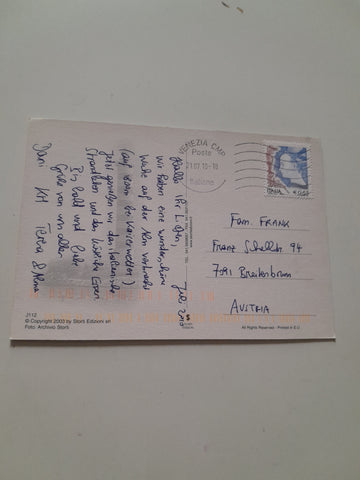 VENEZIA CMP
Poste
21.07. 10-18
Italiane
ITALIA
Juli 2010
Hallo Ihr Lieben,
wir haben eine wunderschöne
Woche auf der Alm verbracht
(auf dann bei Kaiserwetter)
Jetzt genießen wir den italienischen
Strand und das köstliche Essen
Bis bald und liebe
Grüße von uns allen
Dani
Fam. FRANK
Franz Schubert 94
7091 Breitenbrunn
AUSTRIA
J112
© Copyright 2003 by Storti Edizioni srl
Foto: Archivio Storti
All Rights Reserved - Printed in E.U.